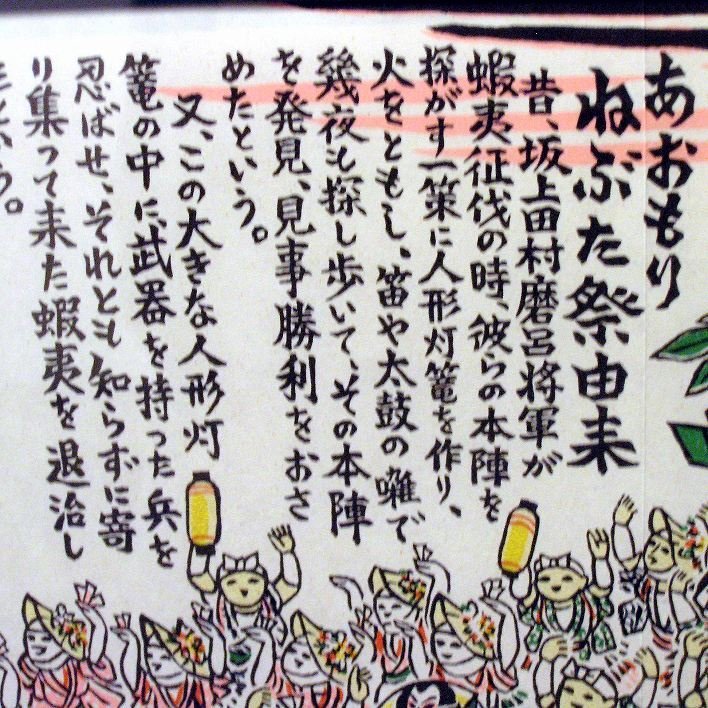 あおもり
ねぶた祭由来
昔、坂上田村磨呂将軍が
蝦夷征伐の時、彼らの本陣を
探がす一策に人形灯篭を作り、
火をともし、笛や太鼓の囃で
幾夜も探し歩いて、その本陣
を発見、見事勝利をおさ
めたという。
又、この大きな人形灯
篭の中に、武器を持った兵を
忍ばせ、それとも知らずに寄
り集って来た蝦夷を退治し
たという。